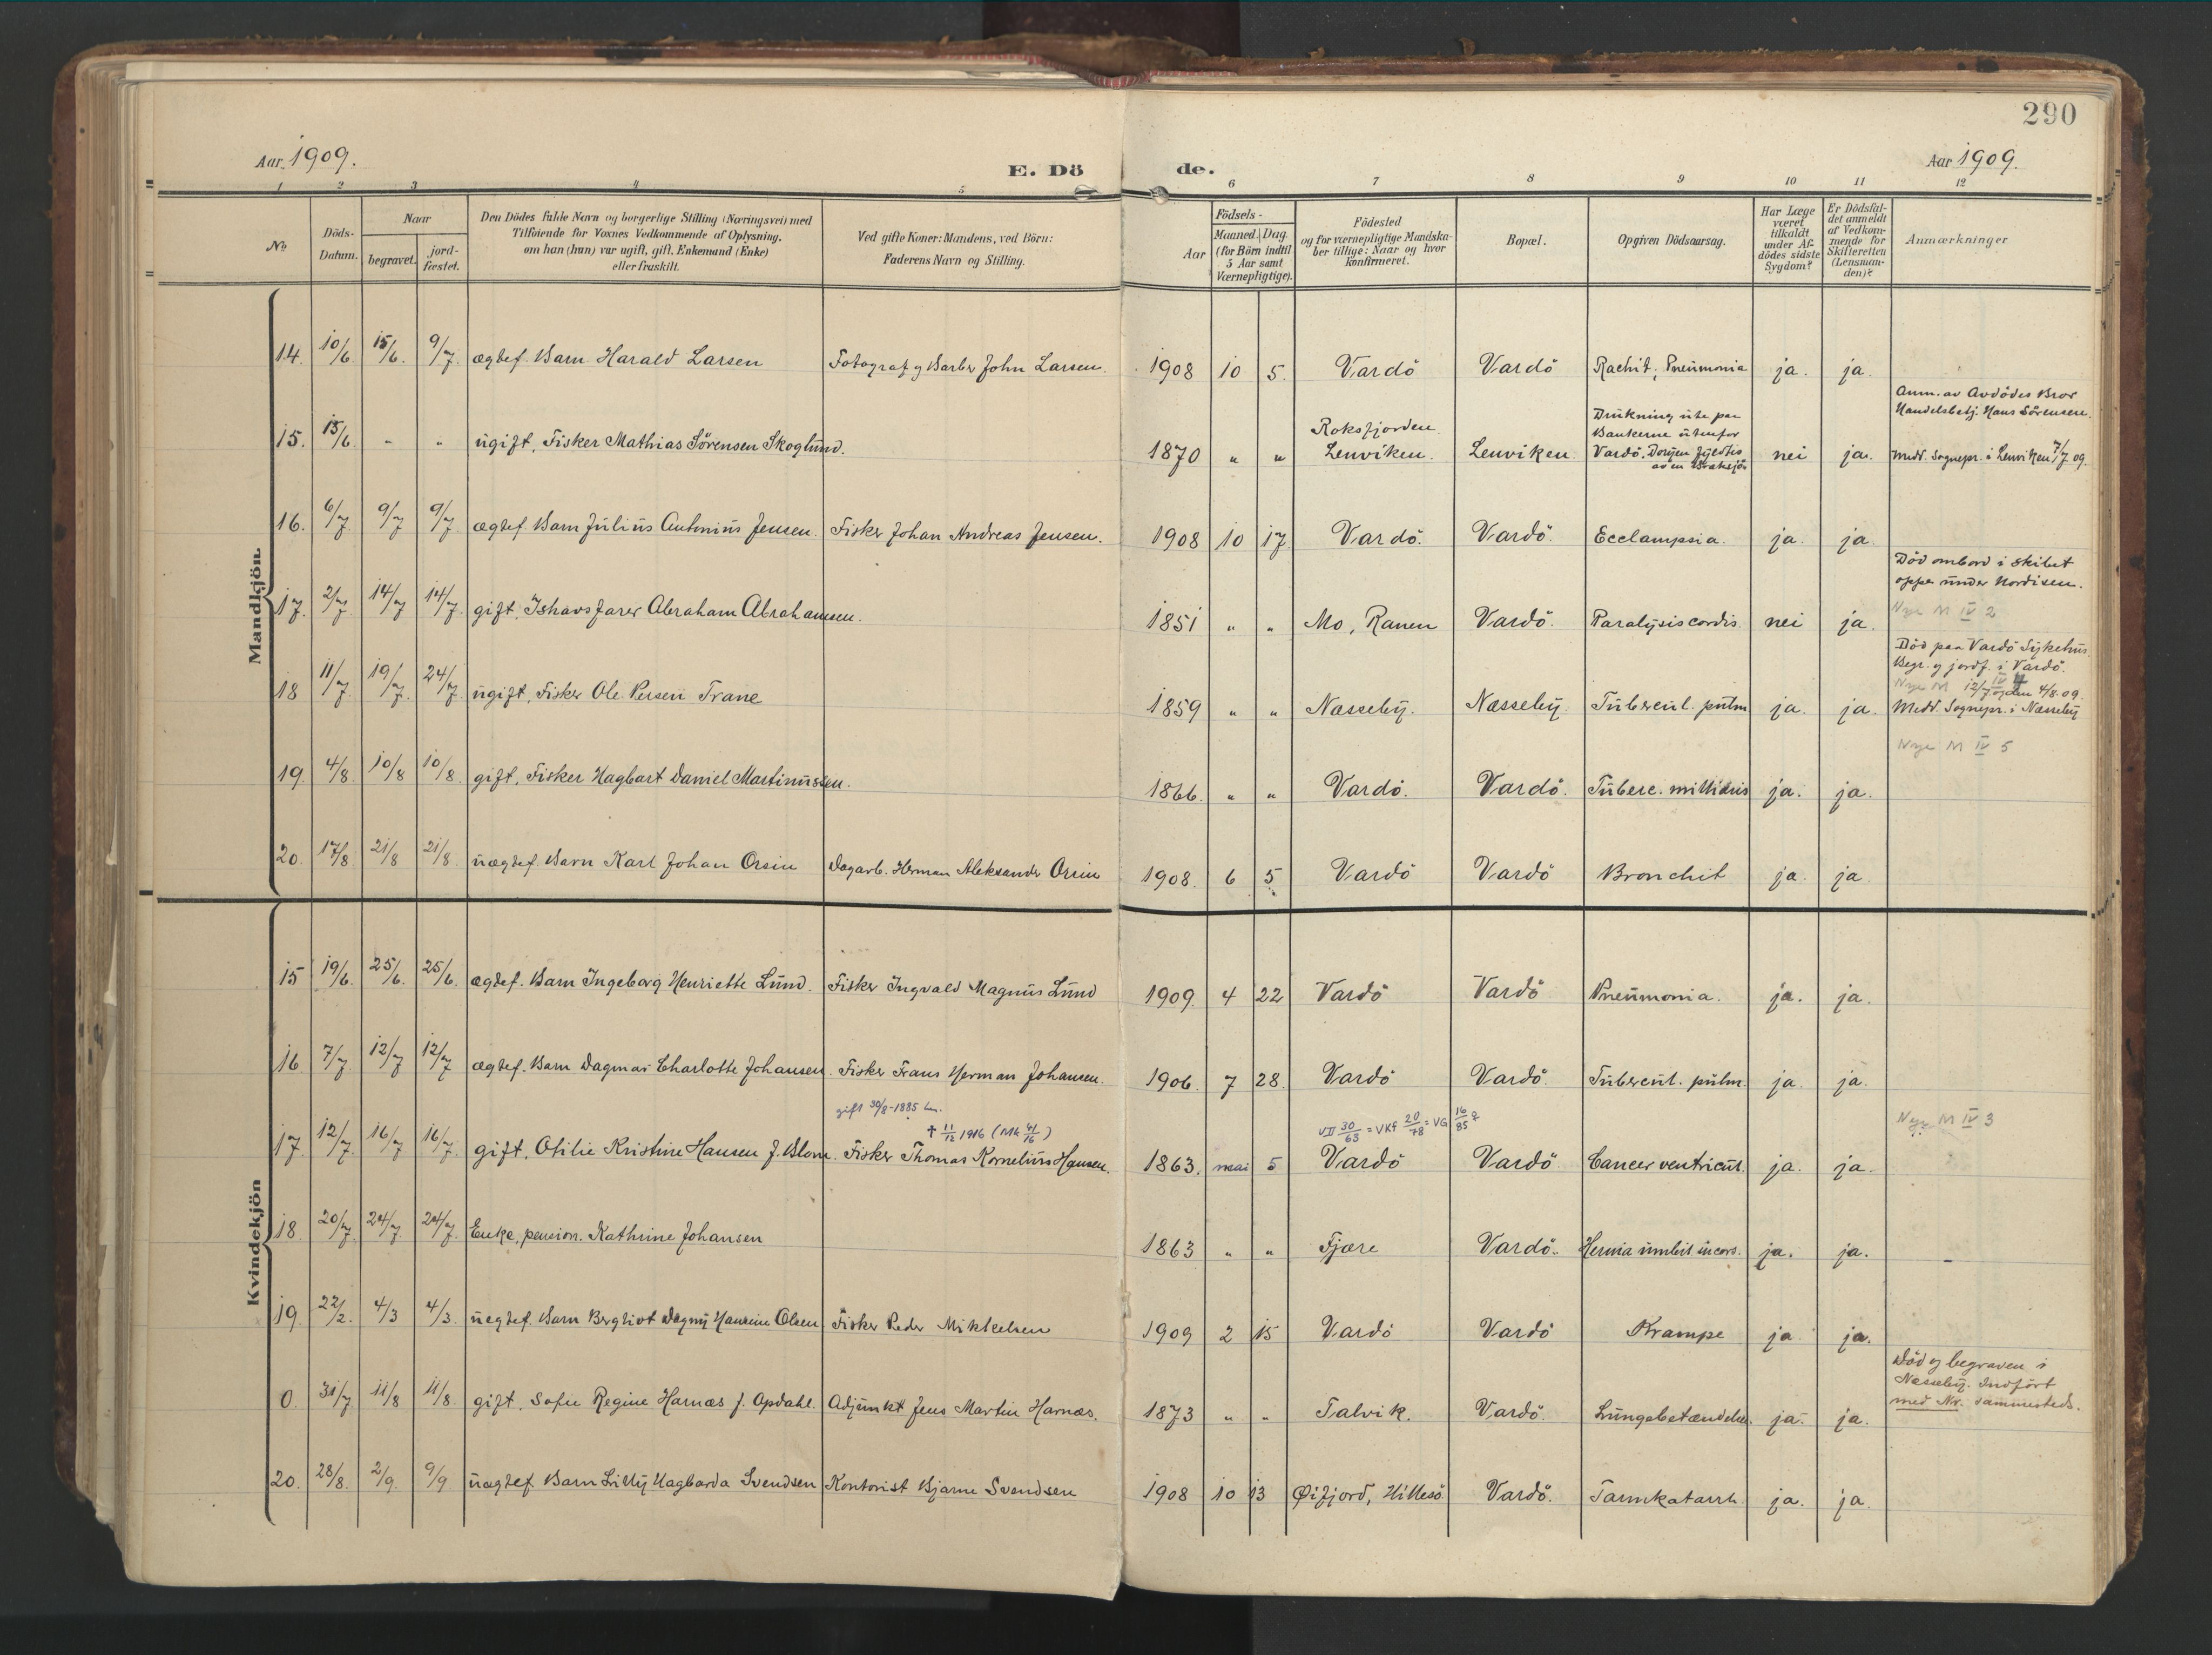 290
Aar 1909.
E. Dö de.
Aar 1909.
1 2 3 4 5 6 7 8 9 10 11 12
No.
Döds-Datum.
Naar
begravet.
jord-fæstet.
Den Dödes fulde Navn og borgerlige Stilling (Næringsvei) med
Tilföiende for Voxnes Vedkommende af Oplysning,
om han (hun) var ugift, gift, Enkemand (Enke)
eller fraskilt.
Ved gifte Koner: Mandens, ved Börn:
Faderens Navn og Stilling.
Födsels-
Aar
Maaned. Dag.
(for Börn indtil
5 Aar samt
Værnepligtige).
Födested
og for værnepligtige Mandska-
ber tillige: Naar og hvor
konfirmeret.
Bopæl.
Opgiven Dödsaarsag.
Har Læge
været
tilkaldt
under Af-
dödes sidste
Sygdom?
Er Dödsfal-
det anmeldt
af Vedkom-
mende for
Skifteretten
(Lensman-
den)?
Anmærkninger
Mandkjön.
14. 10/6 15/6. 9/7. ægtef. Barn Harald Larsen Fotograf og Barber John Larsen. 1908 10 5. Vardö Vardö Rachit, Pneumonia ja. ja.
Anm. av Avdödes Bror
Handelsbetj. Hans Sörensen.
15. 15/6. - " ugift, Fisker Mathias Sörensen Skoglund. 1870 " " Roksfjorden Lenviken. Lenviken. Drukning ute paa
Bankerne utenfor
Vardö. Doryen fyldtes
av en Brakjö nei ja. Medd. Sognepr. i Lenviken 7/7 09.
16. 6/7 9/7 9/7 ægtef. Barn Julius Antonius Jensen. Fisker Johan Andreas Jensen. 1908 10 17. Vardö. Vardö. Ecclampsia. ja. ja
Död ombord i skibet
oppe under Nordisen.
17. 2/7 14/7 14/7. gift, Ishavsfarer Abraham Abrahamsen. 1851 " " Mo, Ranen Vardö. Paralysis cordis. nei ja. Nye M IV 2
Död paa Vardö Sykehus.
Begr. og jordf. i Vardö.
Nye M IV 4
18 11/7. 19/7. 24/7. ugift, Fisker Ole Persen Trane 1859 " " Næsseby. Næsseby. Tubercul. pulm ja. ja. Medd. Sognepr. i Næsseby
Nye M IV 5
19. 4/8. 10/8 10/8. gift, Fisker Hagbart Daniel Martinussen. 1866. " " Vardö. Vardö. Tuberc. milliaris ja. ja.
20. 17/8 21/8 21/8. uægtef. Barn Karl Johan Orsin Dagarb. Herman Aleksander Orsin 1908. 6 5 Vardö Vardö Bronchit ja. ja
Kvindekjön
15 19/6 25/6. 25/6. ægtef. Barn Ingeborg Henriette Lund. Fisker Ingvald Magnus Lund 1909. 4 22 Vardö Vardö Pneumonia. ja. ja.
16 7/7. 12/7 12/7 ægtef. Barn Dagmar Charlotte Johansen. Fisker Frans Herman Johansen. 1906. 7 28. Vardö Vardö. Tubercul. pulm. ja. ja.
gift 30/8-1885 m.
† 11/12 1916 (Mk 41/16)
VII 30/63 = VKf 20/78 = VG 16/85 ?
Nye M IV 3
17. 12/7. 16/7 16/7. gift, Otilie Kristine Hansen f. Blom. Fisker Thomas Kornelius Hansen. 1863. mai 5 Vardö Vardö. Cancer ventricul. ja. ja.
18 20/7. 24/7. 24/7. Enke, pension. Kathrine Johansen 1863 " " Fjære Vardö. Hernia umbil incarc. ja. ja. -
19. 22/2. 4/3 4/3. uegtef. Barn Bergliot Dagny Hansine Olsen Fisker Peder Mikkelsen 1909 2 15 Vardö Vardö Krampe ja ja.
Död og begraven i
Næsseby. Indfört
med Nr. sammesteds.
0. 31/7 11/8 11/8. gift, Sofie Regine Harnæs f. Opdahl. Adjunkt Jens Martin Harnæs. 1873 " " Talvik. Vardö. Lungebetændelse. ja. ja.
20. 28/8. 2/9. 9/9 uægtef Barn Lilly Hagbarda Svendsen Kontorist Bjarne Svendsen 1908 10 13 Øifjord, Hillesö. Vardö. Tarmkatarrh. ja. ja.